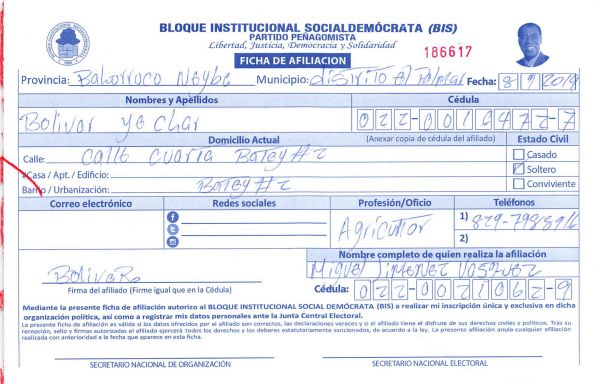 BLOQUE INSTITUCIONAL SOCIALDEMÓCRATA (BIS)
PARTIDO PEÑAGOMISTA
Libertad, Justicia, Democracia y Solidaridad
186617
FICHA DE AFILIACION
Provincia: Bahorruco Neybe Municipio: distrito El Palmar Fecha: 8/9/2018
Nombres y Apellidos Cédula
Bolivar ya Char 022-0019477-7
Domicilio Actual (Anexar copia de cédula del afiliado) Estado Civil
Calle: Calle Cuarta Batey #2 Casado
Casa / Apt. / Edificio: Soltero
Barrio / Urbanización: Batey #2 Conviviente
Correo electrónico Redes sociales Profesión/Oficio Teléfonos
Agricultor 1)
2)
Nombre completo de quien realiza la afiliación
Bolivar Miguel Jimenez Vasquez
Firma del afiliado (Firme igual que en la Cédula) Cédula: 022-0021062-9
Mediante la presente ficha de afiliación autorizo al BLOQUE INSTITUCIONAL SOCIAL DEMÓCRATA (BIS) a realizar mi inscripción única y exclusiva en dicha
organización política, así como a registrar mis datos personales ante la Junta Central Electoral.
La presente ficha de afiliación es válida si los datos ofrecidos por el afiliado son correctos, las declaraciones veraces y si el afiliado tiene el disfrute de sus derechos civiles y políticos. Tras su
recepción, sello y firmas autorizadas el afiliado ejercerá todos los derechos y los deberes estatutariamente sancionados, de acuerdo a la ley. La presente afiliación anula cualquier afiliación
realizada con anterioridad a la fecha que aparece en esta ficha.
SECRETARIO NACIONAL DE ORGANIZACIÓN SECRETARIO NACIONAL ELECTORAL